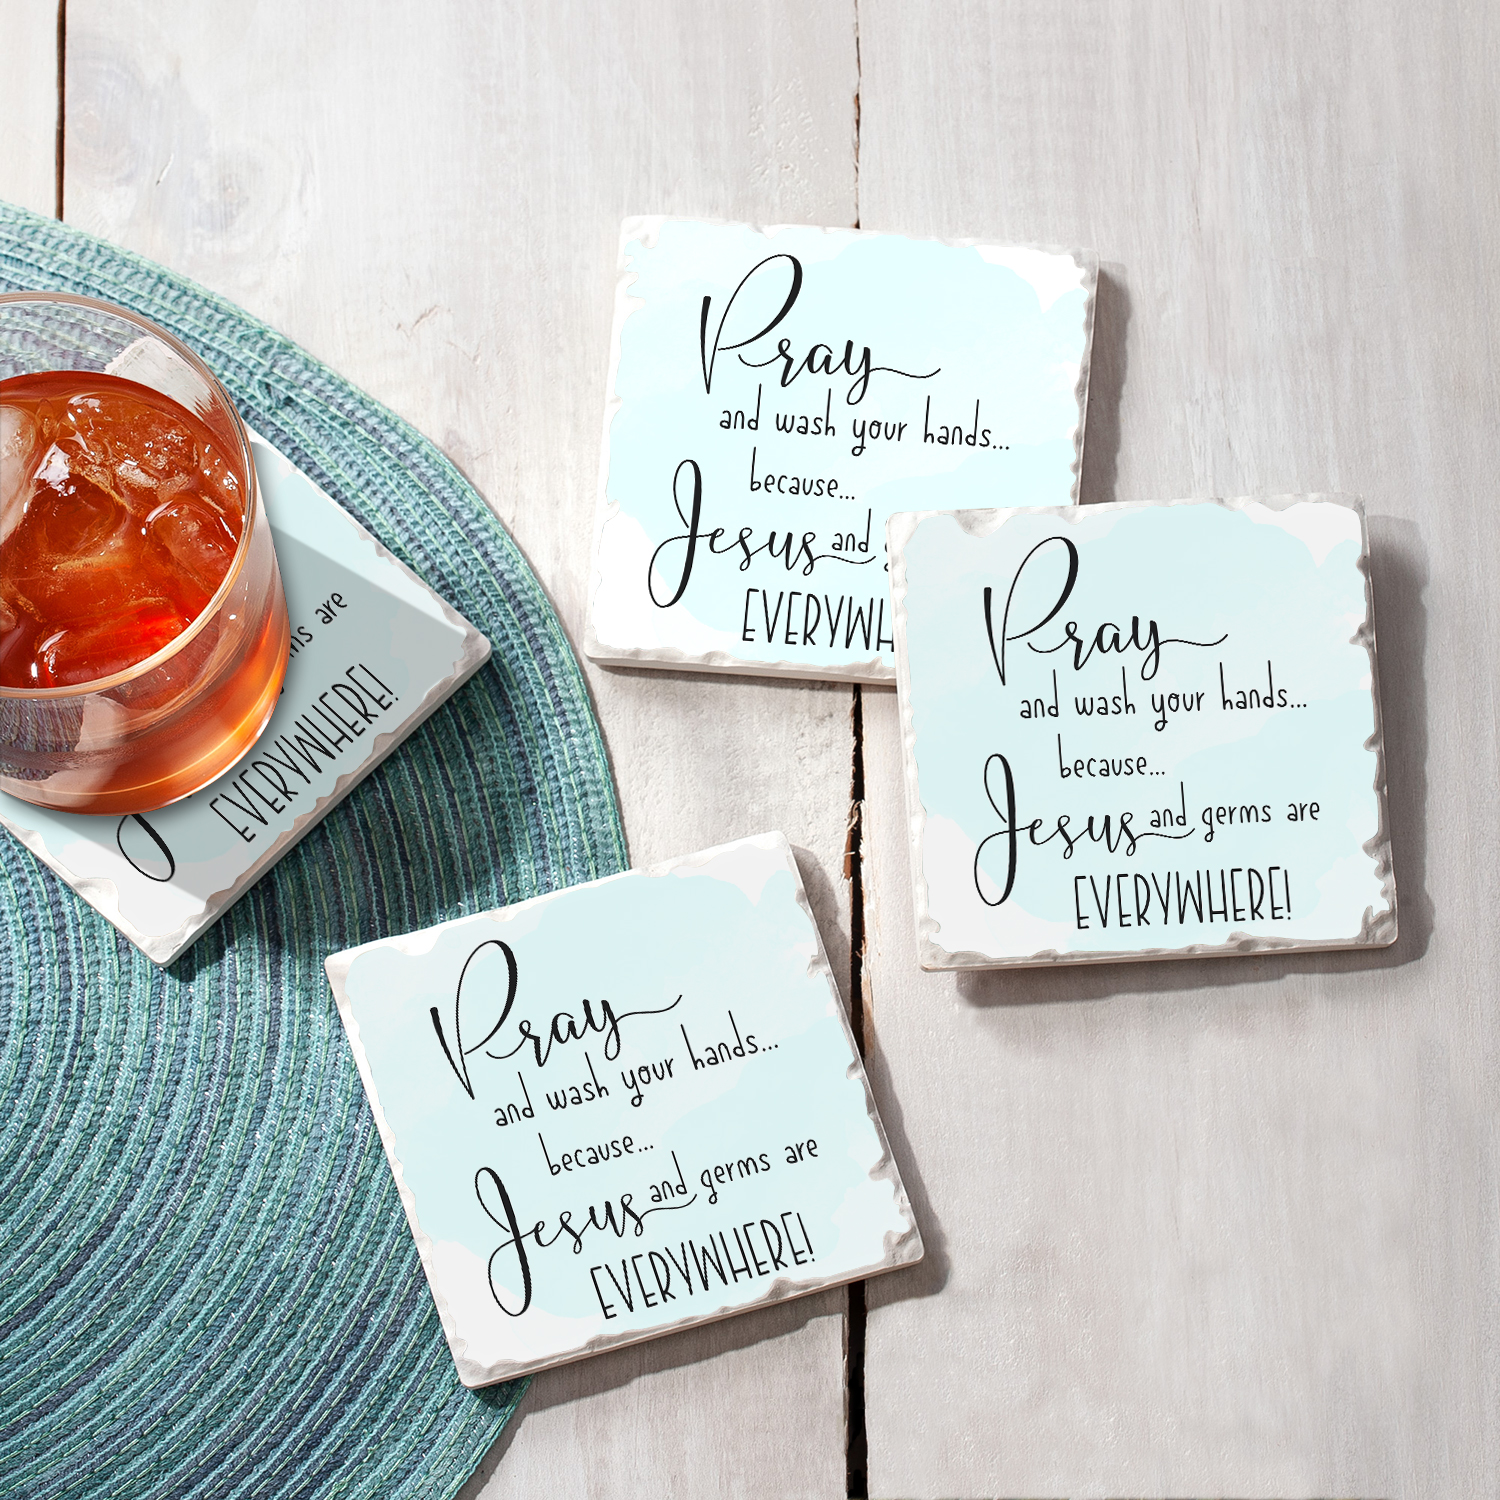 Pray
and wash your hands...
because...
Jesus and
EVERYWH
Pray
and wash your hands...
because...
Jesus and germs are
EVERYWHERE!
are
EVERYWHERE!
Pray
and wash your hands...
because...
Jesus and germs are
EVERYWHERE!